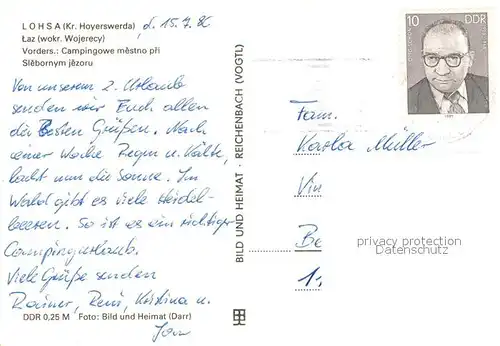 LOHSA (Kr. Hoyerswerda)
Łaz (wokr. Wojerecy)
Vorders.: Campingowe městno při
Slěbornym jězoru
d. 15.7.86
Von unserem 2. Urlaub
senden wir Euch allen
die Besten Grüße. Nach
einer Woche Regen u. Kälte,
lacht nun die Sonne. Im
Wald gibt es viele Heidel-
beeren. So ist es ein richtiger
Campingurlaub.
Viele Grüße senden
Rainer, Reni, Kristina u.
DDR 0,25 M Foto: Bild und Heimat (Darr)
BILD UND HEIMAT · REICHENBACH (VOGTL)
10 DDR
Fam.
Karla Müller
privacy protection
Datenschutz